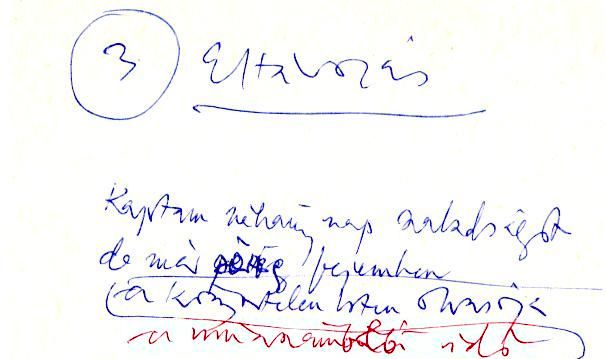 3 Eltávozás
Kaptam néhány nap szabadságot
de már fejemben
a könyörtelen Isten olvassa
a idő